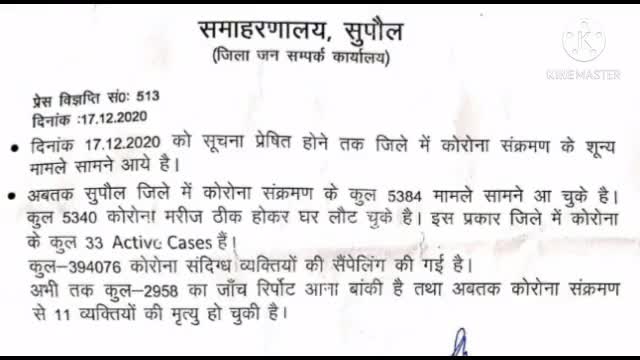 समाहरणालय, सुपौल
(जिला जन सम्पर्क कार्यालय)
KINEMASTER
प्रेस विज्ञप्ति सं0: 513
दिनांक :17.12.2020
• दिनांक 17.12.2020 को सूचना प्रेषित होने तक जिले में कोरोना संक्रमण के शून्य
मामले सामने आये है।
• अबतक सुपौल जिले में कोरोना संक्रमण के कुल 5384 मामले सामने आ चुके है।
कुल 5340 कोरोना मरीज ठीक होकर घर लौट चुके है। इस प्रकार जिले में कोरोना
के कुल 33 Active Cases हैं।
कुल-394076 कोरोना संदिग्ध व्यक्तियों की सैंपेलिंग की गई है।
अभी तक कुल-2958 का जाँच रिर्पोट आना बांकी है तथा अबतक कोरोना संक्रमण
से 11 व्यक्तियों की मृत्यु हो चुकी है।